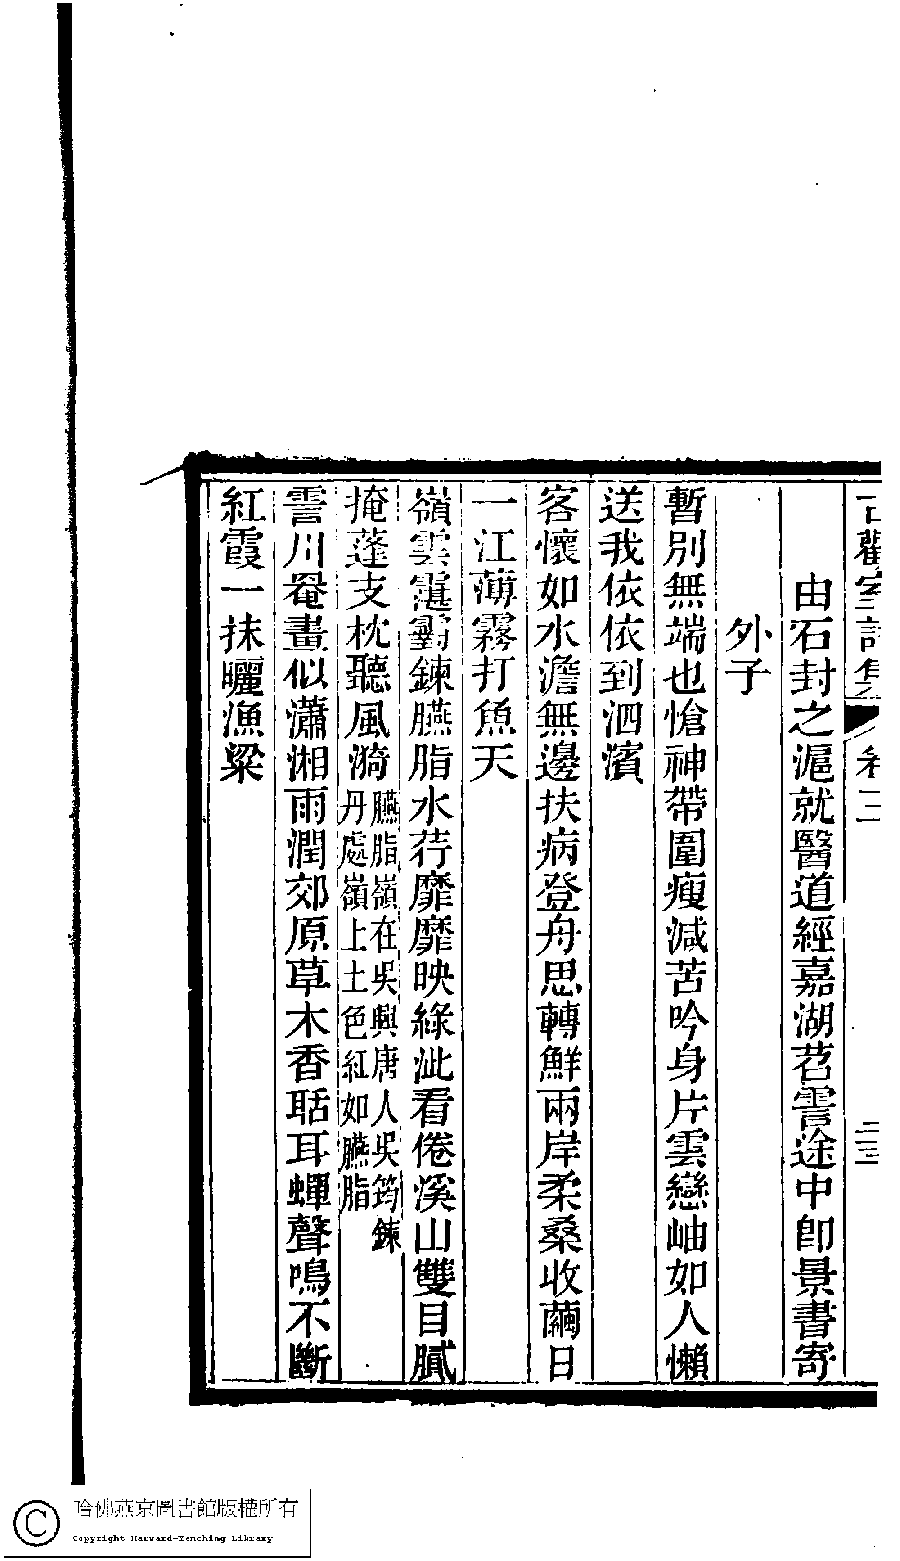 古觀室詩集 卷二 二三
由石封之滬就醫道經嘉湖苕霅途中卽景書寄
外子
暫別無端也愴神帶圍瘦減苦吟身片雲戀岫如人懶
送我依依到泗濱
客懷如水澹無邊扶病登舟思轉鮮兩岸柔桑收繭日
一江薄霧打魚天
嶺雲靄靄鍊臙脂水荇靡靡映綠沘看倦溪山雙目膩
掩蓬支枕聽風漪臙脂嶺在吳興唐人吳筠鍊
丹處嶺上土色紅如臙脂
霅川罨畫似瀟湘雨潤郊原草木香聒耳蟬聲鳴不斷
紅霞一抹曬漁梁
哈佛燕京圖書館版權所有
Copyright Harvard-Yenching Library